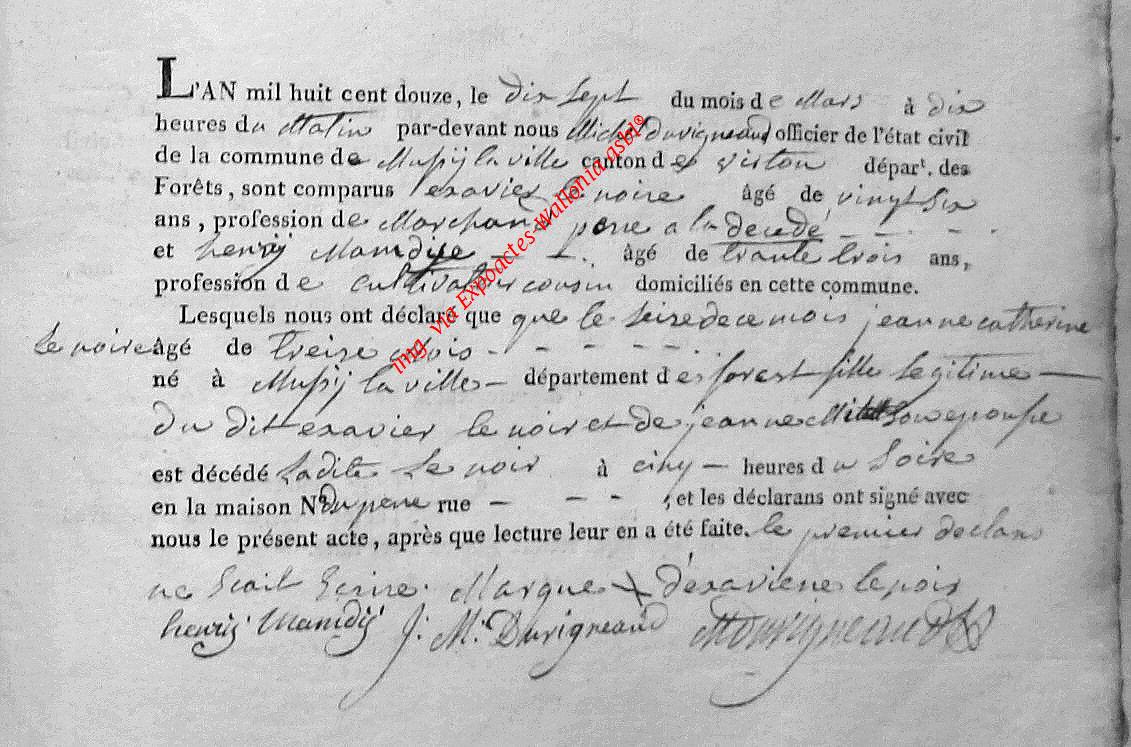 L'AN mil huit cent douze, le dix sept du mois de Mars à dix
heures du Matin par-devant nous Michel Duvigneaud officier de l'état civil
de la commune de Mussÿ la ville canton de virton départ. des
Forêts, sont comparus exavier le noire âgé de vingt six
ans, profession de Marchand pere a la decedé
et henrÿ Mandÿe âgé de trante trois ans,
profession de cultivateur cousin domiciliés en cette commune.
Lesquels nous ont déclaré que que le seize de ce mois jeanne catherine
le noire âgé de treize mois
né à Mussÿ la ville département des forest fille legitime
du dit exavier le noir et de jeanne son epouse
est décédé ladite le noir à cinq heures du Soire
en la maison N° du pere rue , et les déclarans ont signé avec
nous le présent acte, après que lecture leur en a été faite. le premier declans
ne Scait Ecrire. Marque d'exaviere le noir
henrÿ Mandÿ J. M. Duvigneaud MDuvigneaud
img via Expoactes-Wallonia asbl®